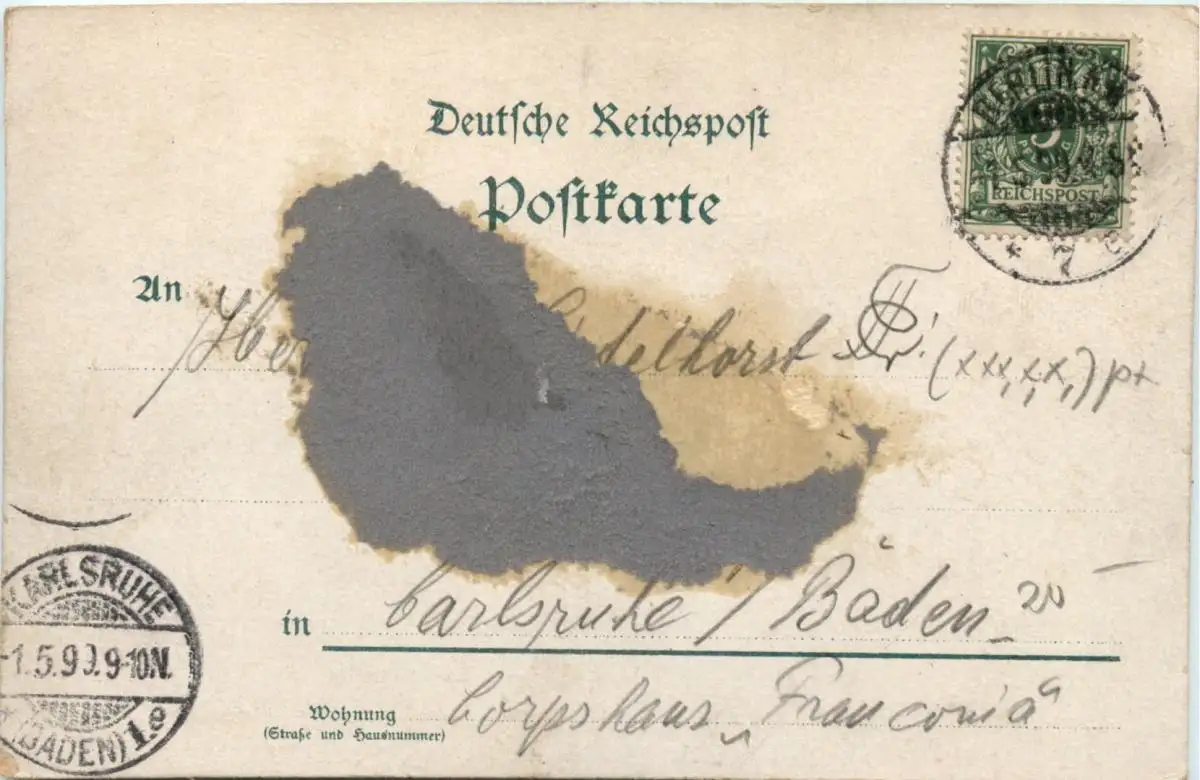 Deutsche Reichspost
Postkarte
BERLIN N.W.
5
REICHSPOST
7
An
delhorst (xxx,xx,)
in Carlsruhe / Baden
Wohnung Corpshaus „Franconia“
(Straße und Hausnummer)
KARLSRUHE
1.5.99.9-10N.
(BADEN) 1.e